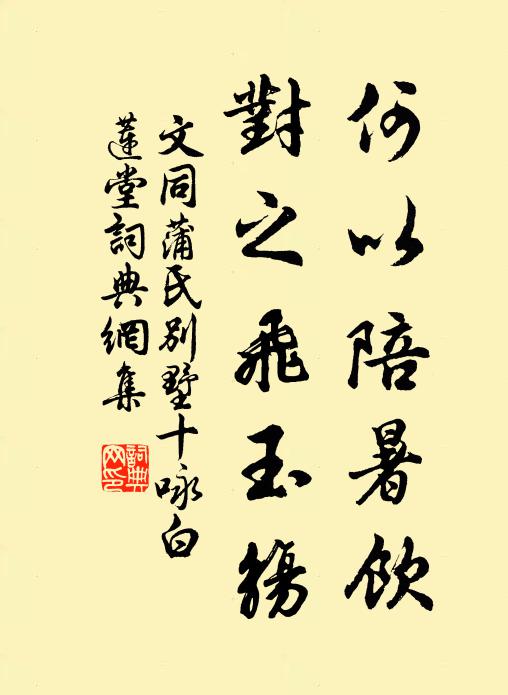 何以陪暑飲
對之飛玉觴
文同蒲氏別墅十咏白
蓮堂詞典網集
詞典網印